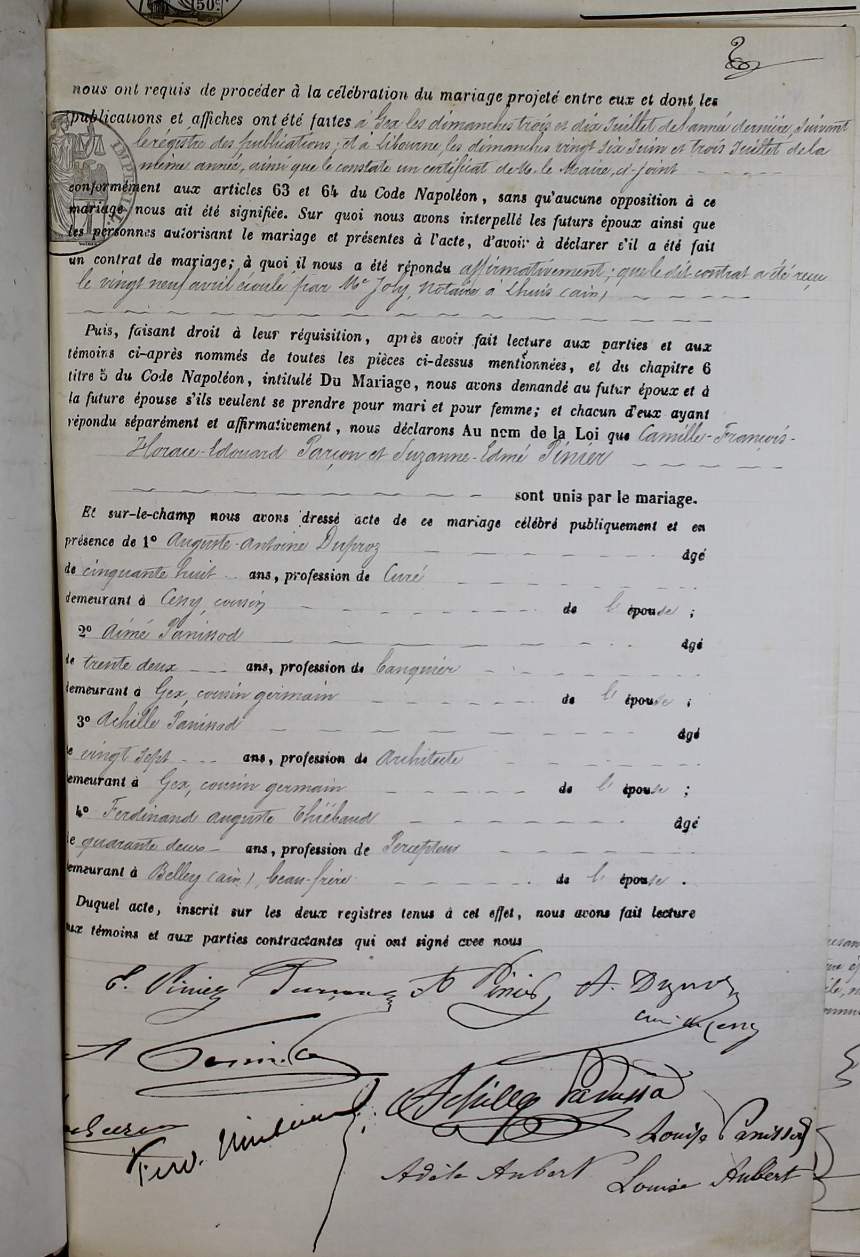 50c
nous ont requis de procéder à la célébration du mariage projeté entre eux et dont les
publications et affiches ont été faites à Gex les dimanches trois et dix Juillet de l'année dernière, suivant
le régistre des publications; et a Libourne, les dimanches vingt six Juin et trois Juillet de la
même année, ainsi que le constate un certificat de M. le Maire, ci-joint
conformément aux articles 63 et 64 du Code Napoléon, sans qu'aucune opposition à ce
mariage nous ait été signifiée. Sur quoi nous avons interpellé les futurs époux ainsi que
les personnes autorisant le mariage et présentes à l'acte, d'avoir à déclarer s'il a été fait
un contrat de mariage; à quoi il nous a été répondu affirmativement; que le dit contrat a été reçu
le vingt neuf avril écoulé par Me Joly, Notaire à Lhuis (ain)
Puis, faisant droit à leur réquisition, après avoir fait lecture aux parties et aux
témoins ci-après nommés de toutes les pièces ci-dessus mentionnées, et du chapitre 6
titre 5 du Code Napoléon, intitulé Du Mariage, nous avons demandé au futur époux et à
la future épouse s'ils veulent se prendre pour mari et pour femme; et chacun d'eux ayant
répondu séparément et affirmativement, nous déclarons Au nom de la Loi que Camille-François-
Horace-Edouard Parçon et Suzanne-Edmé Pinier
sont unis par le mariage.
Et sur-le-champ nous avons dressé acte de ce mariage célébré publiquement et en
présence de 1º Auguste-Antoine Duproz âgé
de cinquante huit ans, profession de Curé
demeurant à Cessy, cousin de l'épouse;
2º Aimé Panissod âgé
de trente deux ans, profession de banquier
demeurant à Gex, cousin germain de l'épouse;
3º Achille Panissod âgé
de vingt sept ans, profession de Architecte
demeurant à Gex, cousin germain de l'épouse;
4º Ferdinand Auguste Thiébaud âgé
de quarante deux ans, profession de Percepteur
demeurant à Belley (ain), beau-frère de l'épouse.
Duquel acte, inscrit sur les deux registres tenus à cet effet, nous avons fait lecture
aux témoins et aux parties contractantes qui ont signé avec nous
Pinier
Achille Panissod
Louise Panissod
Adèle Aubert
Louise Aubert